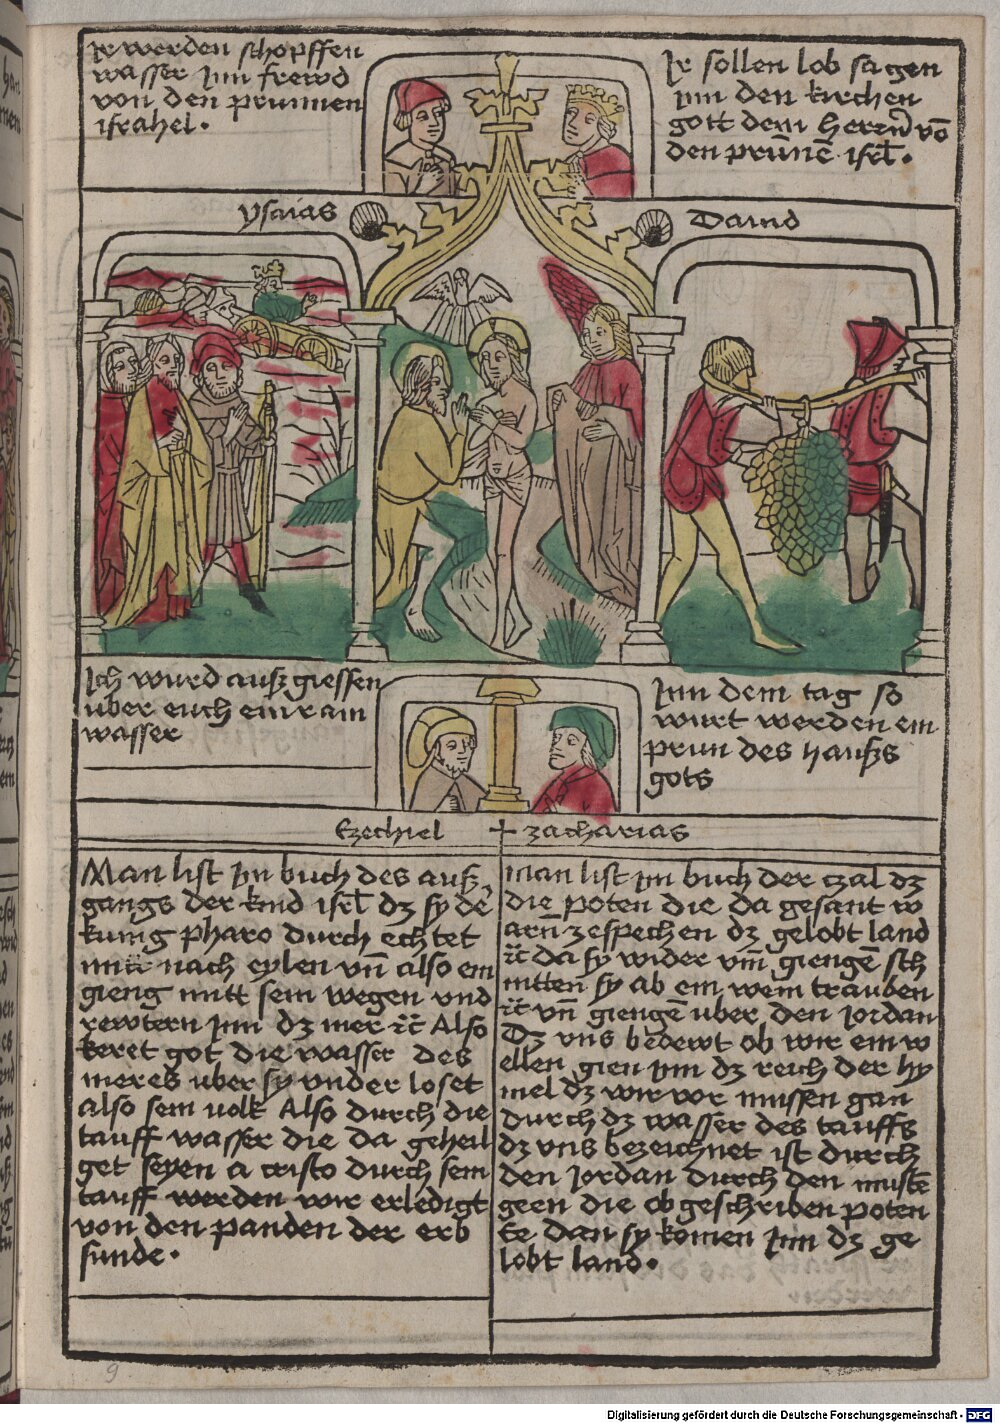 ir werden schopffen
wasser jnn frewd
von den prunnen
israhel.
Jr sollen lob sagen
jnn den kirchen
gott dem herren vō
den prūnē isrl̄.
ysaias
Dauid
Jch wurd auszgiessen
uber euch ein rain
wasser
Jnn dem tag so
wurt werden ein
prun des hauszs
gots
Ezechiel + zacharias
Man list jm buch des ausz
gangs der kind isrl̄ dz sy dē
kunig pharo durch echtet
mitt nach eylen vn̄ also ein
gieng mitt sein wegen vnd
rewtern jnn dz mer ⁊c̄ Also
keret got die wasser des
meres uber sy vnder loset
also sein uolk Also durch die
tauff wasser die da geheil
get seyen a cristo durch sein
tauff werden wir erledigt
von den panden der erb
sunde.
man list jm buch der czal dz
die poten die da gesant w
arn̄ zespechen dz gelobt land
⁊c̄ da sy wider vm̄ giengē sch
nitten sy ab ein wein trauben
⁊c̄ vn̄ giengē uber den jordan
Dz vns bedewt ob wir ein w
ellen gien jnn dz reich der hy
mel dz wir vor mussen gan
durch dz wasser des tauffs
dz vns bezeichnet ist durch
den jordan durch den mustē
geen die ob geschriben poten
ee dan sy komen jnn dz ge
lobt land.
9
Digitalisierung gefördert durch die Deutsche Forschungsgemeinschaft - DFG